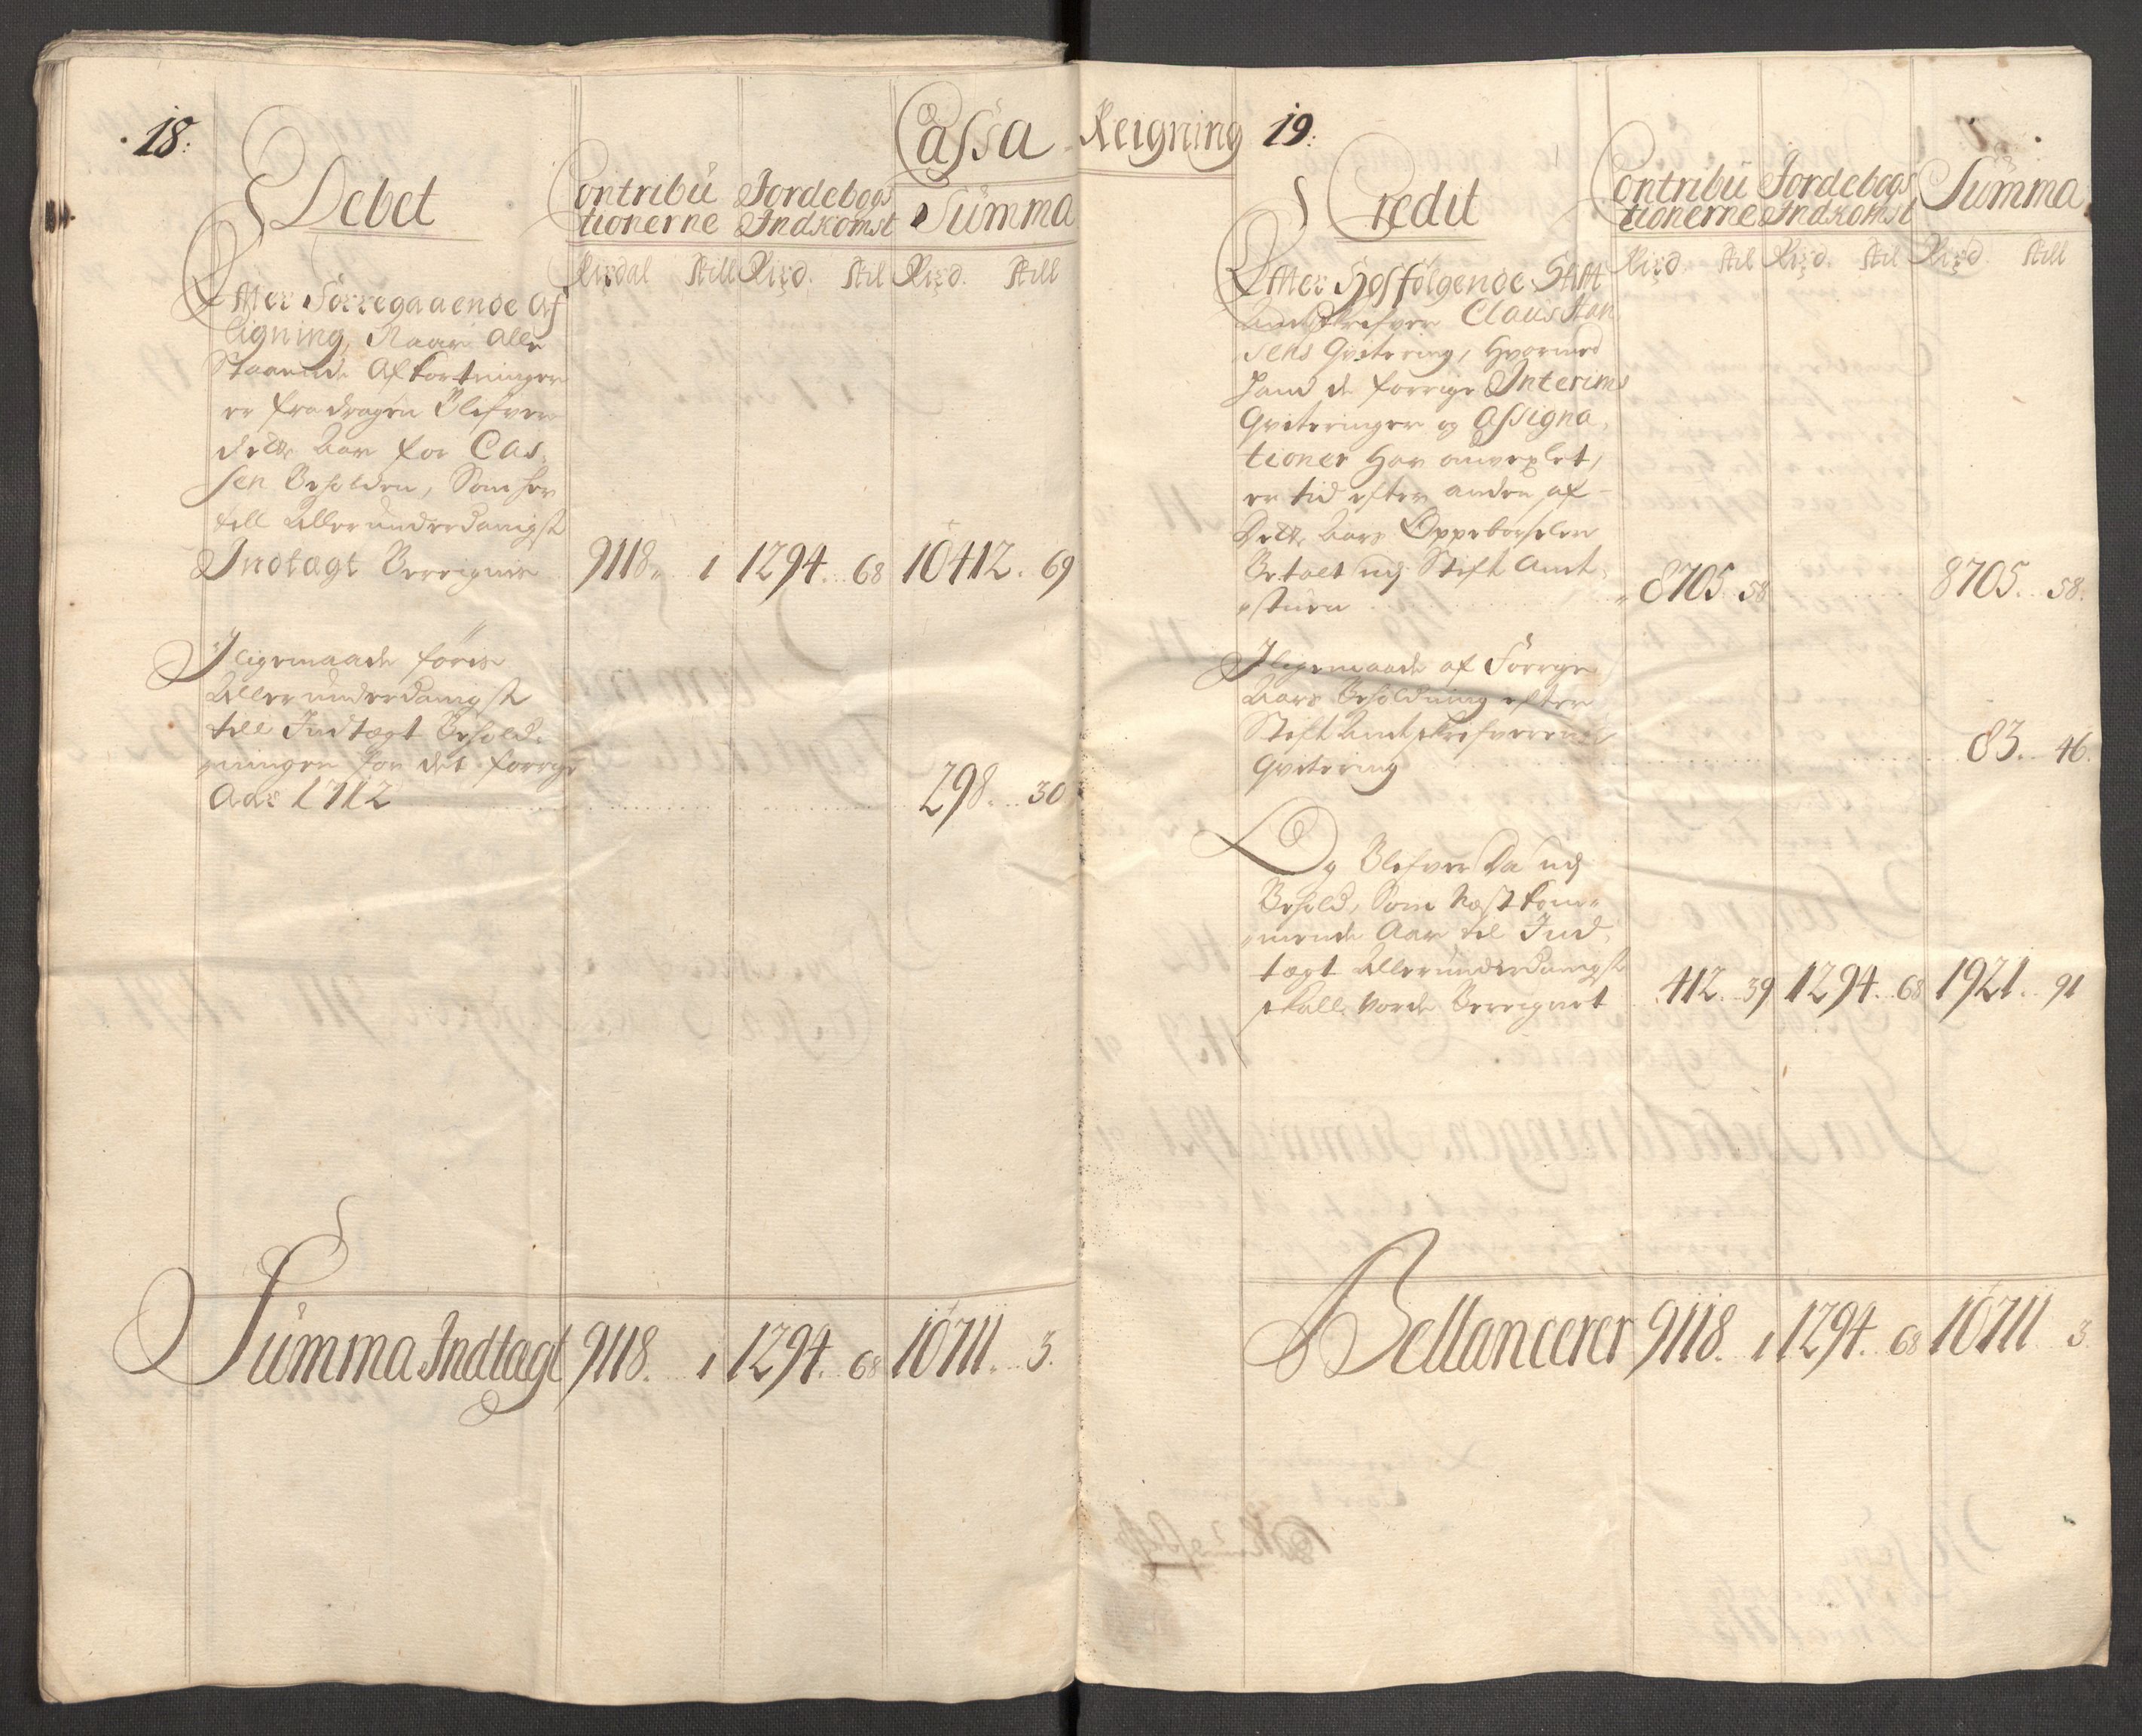 18.
Cassa
Debet
Contribu
tionerne
Jordebogs
Indkomst
Summa
Rixdal Skill Rixd. Skil Rixd. Skill
Efter Forregaaende Af
ligning, Naar Alle
Staaende Afkortninger
er fradragen Blifver
dette Aar for Cas¬
sen Beholden, Som her
till Allerunderdanigst
Indtagt Bereignes 9118 1 1294. 68 10412. 69
J ligemaade føris
Allerunderdanigst
till Indtægt Behold¬
ningen for det forrige
Aar 1712 298. 30
Summa Indtagt 9118. 1 1294. 68 10711. 3.
Reigning 19.
Credit
Contribu
tionerne
Jordebogs
Indkomst
Summa
Rixd. Skil Rixd. Skil Rixd. Skill
Efter Hosfølgende Stift
Amtskrifver Claus Han
sens Qvitering, Hvormed
hand de forrige Interims
Qviteringer og Assigna¬
tioner Har omvexlet,
en tid efter anden af
Dette Aars Oppeborselen
Betalt udj Stift Amt¬
stuen 8705 58 8705. 58.
J ligemaade af Forrige
Aars Beholdning efter
Stift Amtskrifverens
Qvitering 83. 46.
Og Blifver Da udj
Behold, Som Næstkom¬
mende Aar til Ind¬
tægt Allerunderdanigst
skall vorde Bereignet 412. 39 1294. 68 1921. 91
Bellancerer 9118. 1 1294. 68 10711 3.